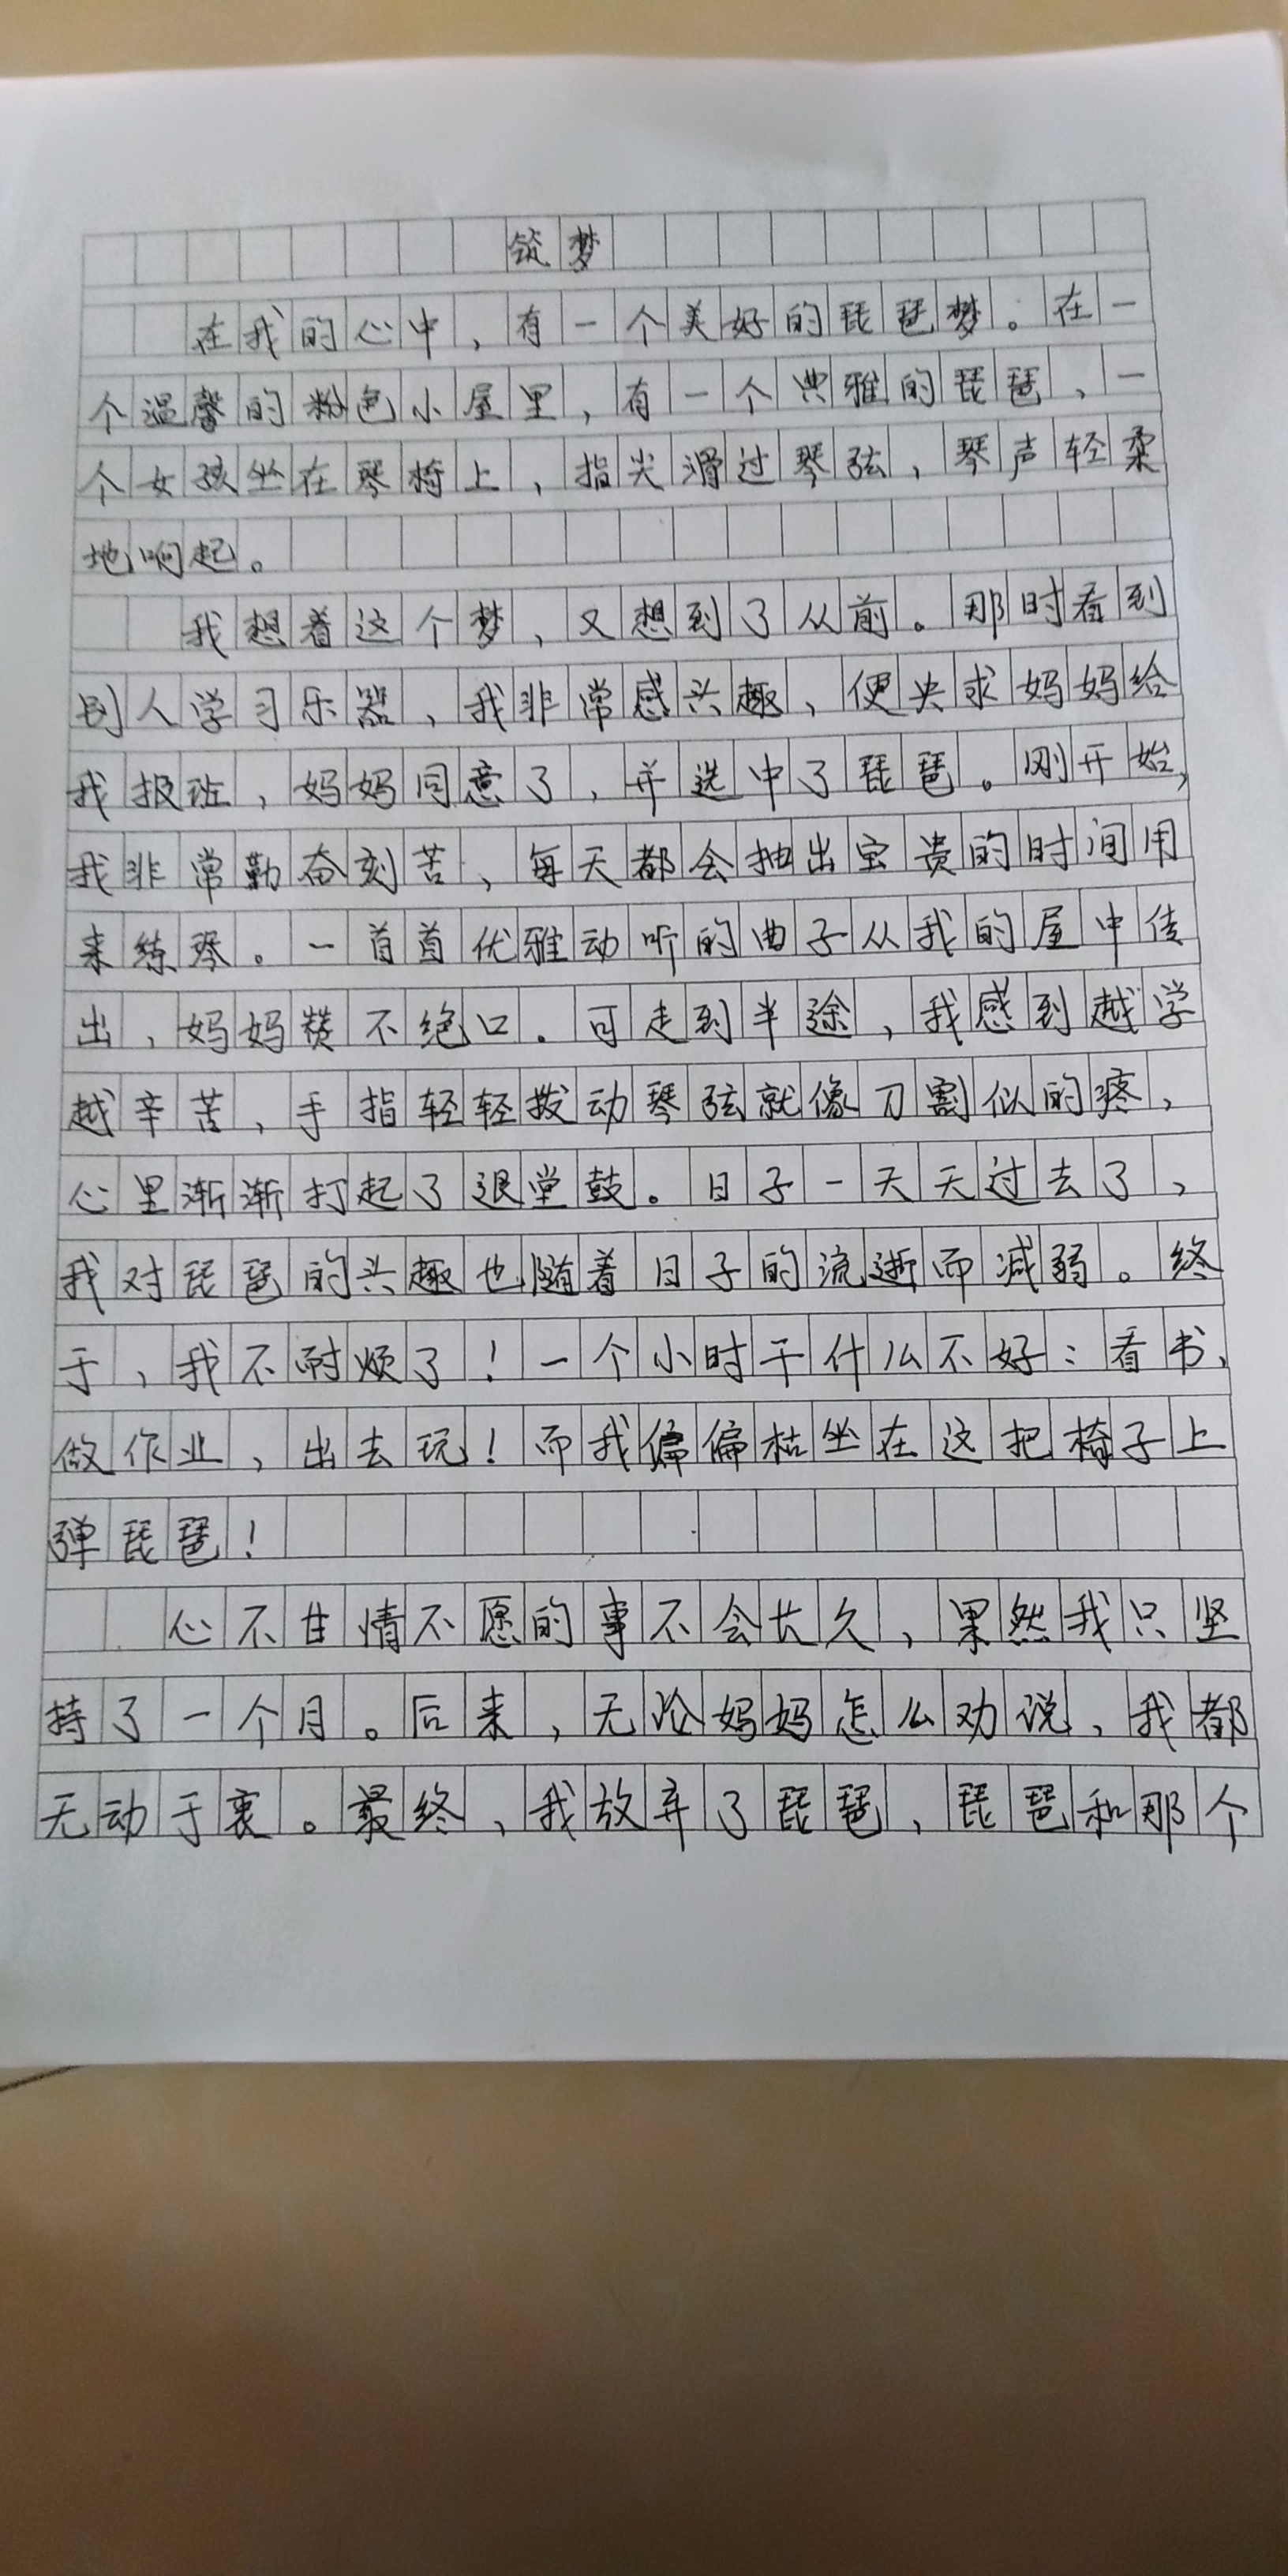 筑梦
在我的心中，有一个美好的琵琶梦。在一
个温馨的粉色小屋里，有一个典雅的琵琶，一
个女孩坐在琴椅上，指尖滑过琴弦，琴声轻柔
地响起。
我想着这个梦，又想到了从前。那时看到
别人学习乐器，我非常感兴趣，便央求妈妈给
我报班，妈妈同意了，并选中了琵琶。刚开始，
我非常勤奋刻苦，每天都会抽出宝贵的时间用
来练琴。一首首优雅动听的曲子从我的屋中传
出，妈妈赞不绝口。可走到半途，我感到越学
越辛苦，手指轻轻拨动琴弦就像刀割似的疼，
心里渐渐打起了退堂鼓。日子一天天过去了，
我对琵琶的兴趣也随着日子的流逝而减弱。终
于，我不耐烦了！一个小时干什么不好：看书、
做作业，出去玩！而我偏偏枯坐在这把椅子上
弹琵琶！
心不甘情不愿的事不会长久，果然我只坚
持了一个月。后来，无论妈妈怎么劝说，我都
无动于衷。最终，我放弃了琵琶，琵琶和那个